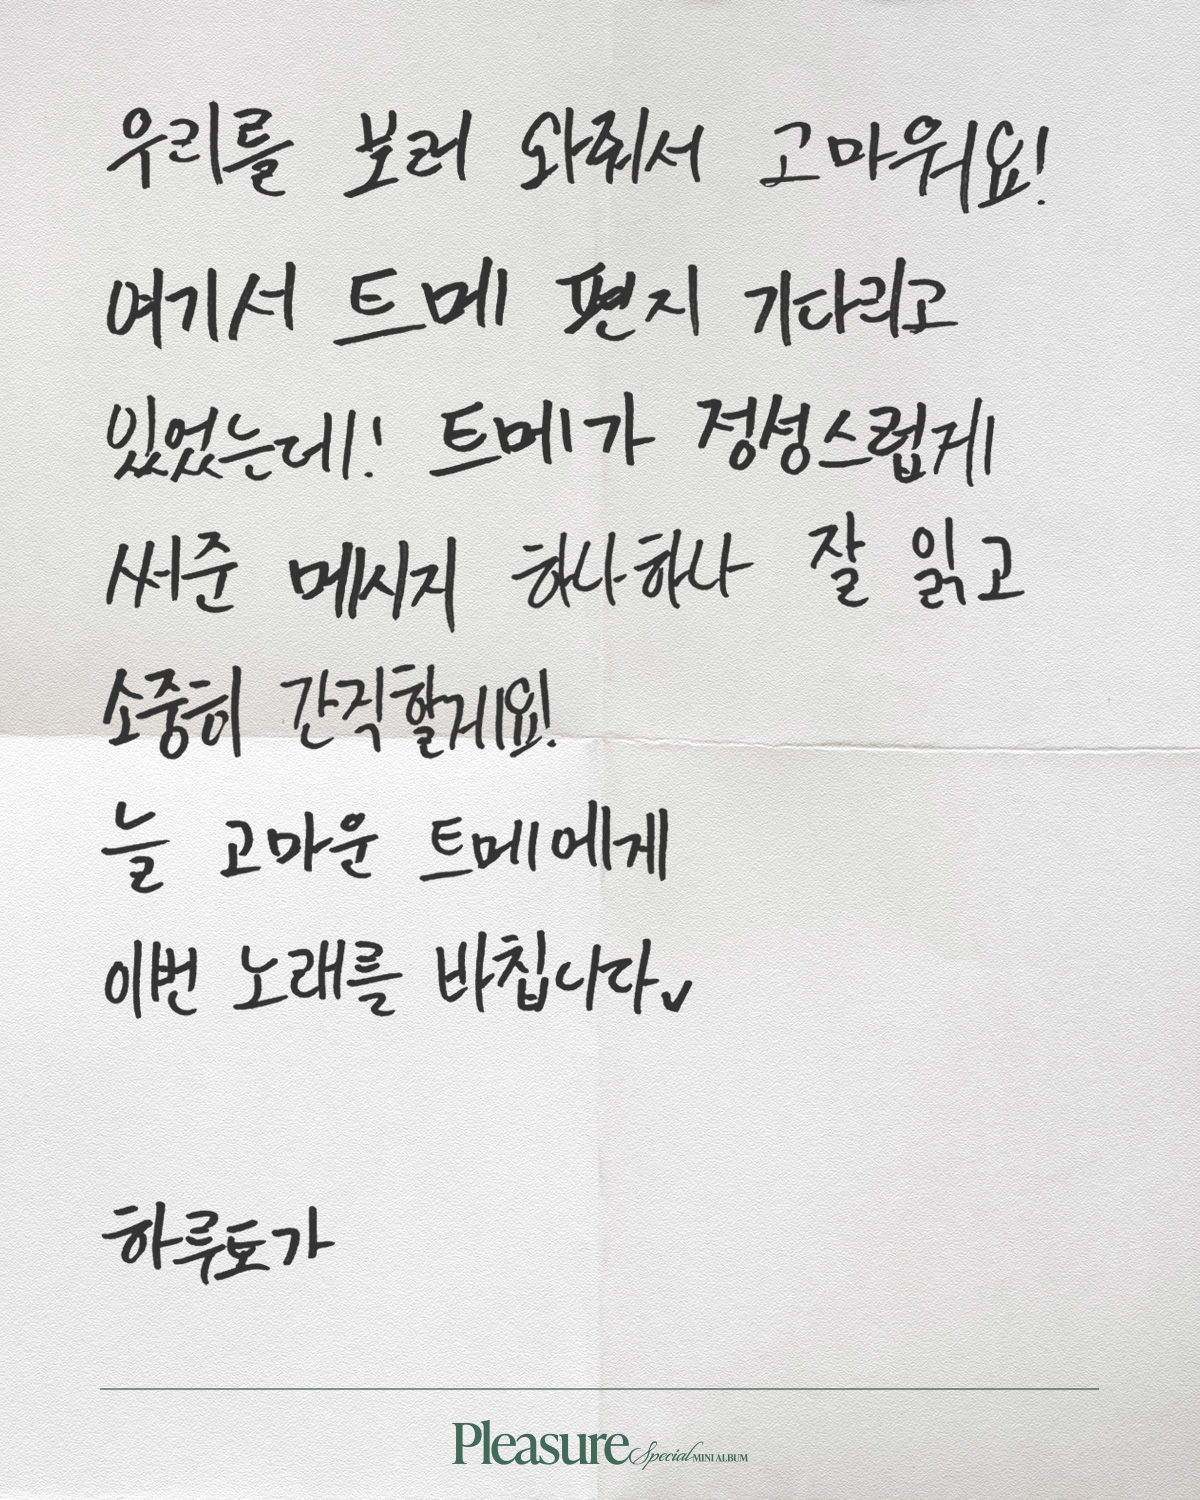 우리를 보러 와줘서 고마워요!
여기서 트메 편지 기다리고
있었는데! 트메가 정성스럽게
써준 메시지 하나하나 잘 읽고
소중히 간직할게요!
늘 고마운 트메에게
이번 노래를 바칩니다
하루토가
Pleasure Special MINI ALBUM